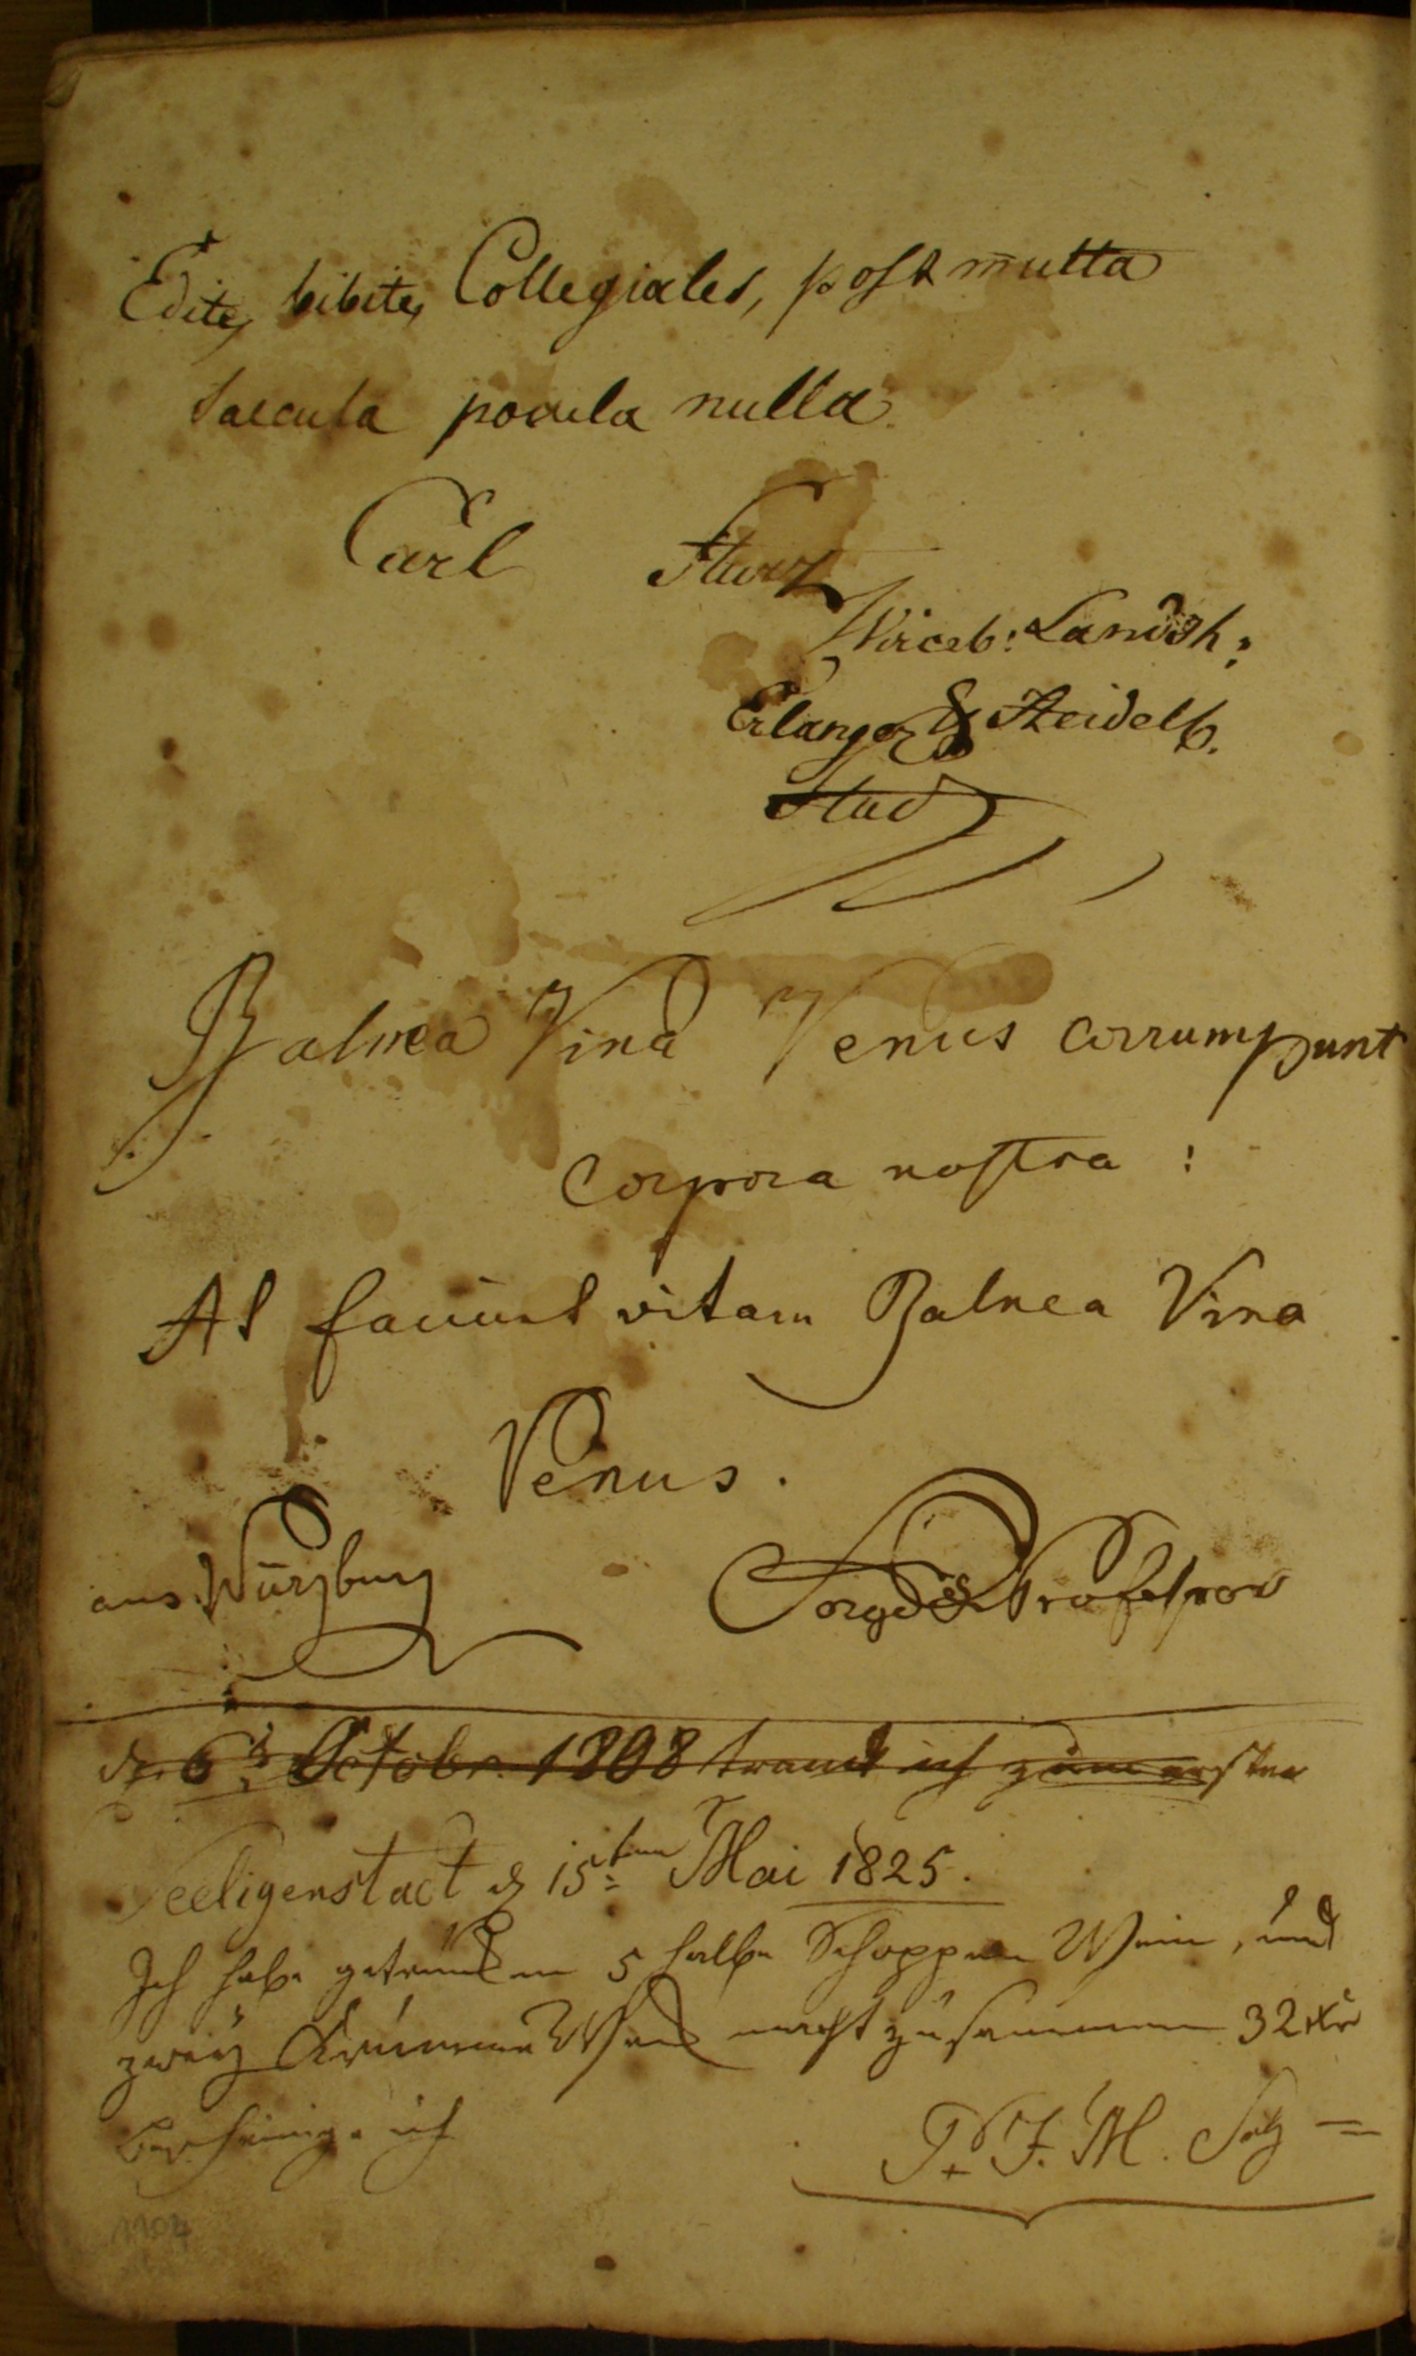 Edite, bibite, Collegiales, post multa
saecula pocula nulla.
Carl Sturz
Wirceb: Landsh:
Erlanger & Heidelb.
Stud
Balnea Vina Venus corrumpunt
corpora nostra :
At faciunt vitam Balnea Vina
Venus.
aus Würzburg
Professor
6 Octobr. 1808 trank ich zum ersten
Seeligenstadt d 15ten Mai 1825.
Ich habe getrunken 5 halbe Schoppen Wein, und
zwey macht zusammen 32 xr
ich
P. J. M.
1104